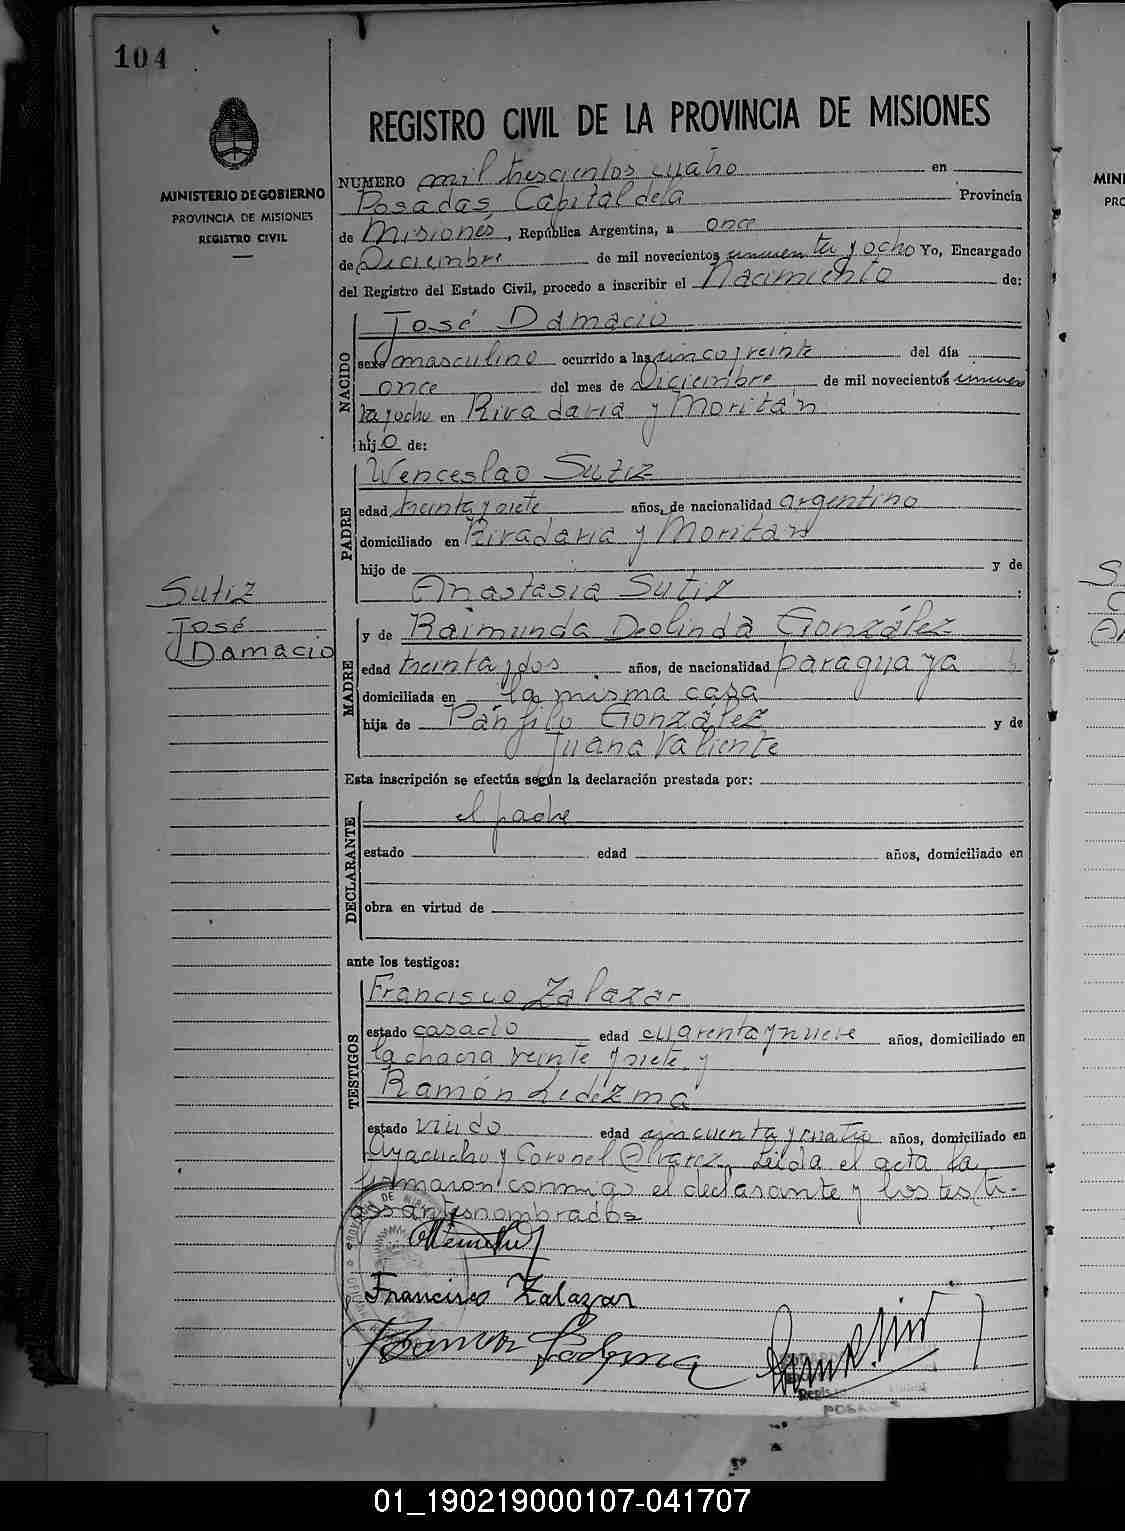 104
REGISTRO CIVIL DE LA PROVINCIA DE MISIONES
MINISTERIO DE GOBIERNO
PROVINCIA DE MISIONES
REGISTRO CIVIL
NUMERO mil trescientos cuatro en
Posadas, Capital de la Provincia
de Misiones, República Argentina, a once
de Diciembre de mil novecientos cincuenta y ocho Yo, Encargado
del Registro del Estado Civil, procedo a inscribir el Nacimiento de:
NACIDO
José Damacio
sexo masculino ocurrido a las cinco y veinte del día
once del mes de Diciembre de mil novecientos cincuen
ta y ocho en Rivadavia y Moritán
hijo de:
PADRE
Wenceslao Sutiz
edad treinta y siete años, de nacionalidad argentino
domiciliado en Rivadavia y Moritan
hijo de y de
Anastasia Sutiz :
Sutiz
José
Damacio
MADRE
y de Raimunda Deolinda González
edad treinta y dos años, de nacionalidad paraguaya
domiciliada en la misma casa
hija de Pánfilo González y de
Juana Valiente
Esta inscripción se efectúa según la declaración prestada por:
DECLARANTE
el padre
estado edad años, domiciliado en
obra en virtud de
ante los testigos:
TESTIGOS
Francisco Zalazar
estado casado edad cuarenta y nueve años, domiciliado en
la chacra veinte y siete y
Ramón Ledezma
estado viudo edad cincuenta y cuatro años, domiciliado en
Ayacucho y Coronel Alvarez. Leida el acta la
firmaron conmigo el declarante y los testi-
gos antes nombrados
Francisco Zalazar
Ramon Ledezma
01_190219000107-041707